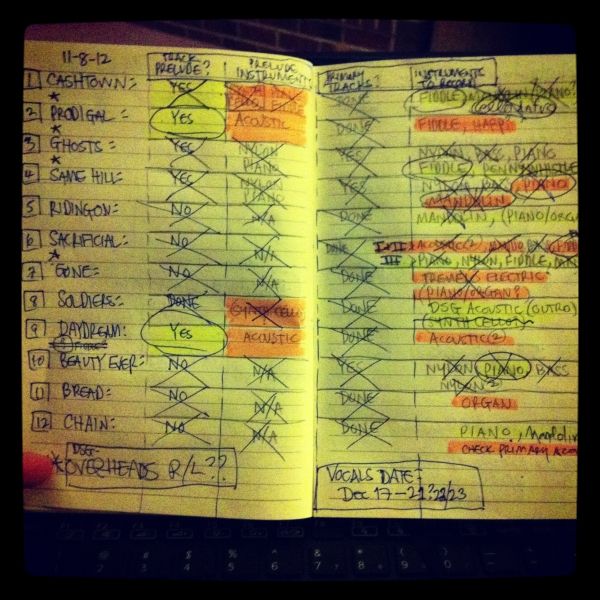 11-8-12
TRACK PRELUDE?
PRELUDE INSTRUMENTS
PRIMARY TRACKS?
INSTRUMENTS TO RECORD
1 CASHTOWN: YES DONE FIDDLE, MANDOLIN, PIANO?
*
2 PRODIGAL: YES ACOUSTIC DONE FIDDLE, HARP?
*
3 GHOSTS: YES NYLON PIANO YES NYLON, BASS, PIANO
* FIDDLE, PENNYWHISTLE
4 SAME HILL: YES NYLON PIANO YES NYLON, BASS, PIANO
MANDOLIN
5 RIDINGON: NO N/A DONE MANDOLIN, (PIANO/ORGAN
6 SACRIFICIAL: NO N/A DONE I+II ACOUSTIC(2)
* III PIANO, NYLON, FIDDLE,
7 GONE: NO N/A DONE TREMELO ELECTRIC
(PIANO/ORGAN?
8 SOLDIERS: DONE SYNTH CELLO DONE DSG ACOUSTIC (OUTRO)
SYNTH CELLO
9 DAYDREAM: YES ACOUSTIC DONE ACOUSTIC(2)
10 BEAUTY EVER: NO N/A YES NYLON, PIANO, BASS
NYLON 2
11 BREAD: NO N/A DONE ORGAN
12 CHAIN: NO N/A DONE PIANO, Mandolin
CHECK PRIMARY
DSG-
* OVERHEADS R/L??
VOCALS DATE:
Dec 17-21? 22/23